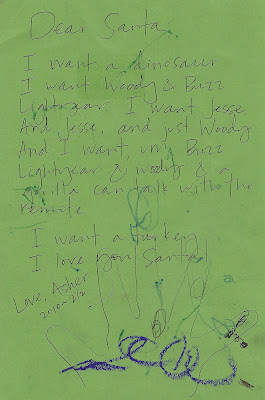 Dear Santa,
I want a dinosaur
I want Woody & Buzz
Lightyear. I want Jesse
And Jesse, and just Woody
And I want, um, Buzz
Lightyear & woody & a
gorilla can talk with the
remote
I want a turkey
I love you Santa!
Love, Asher